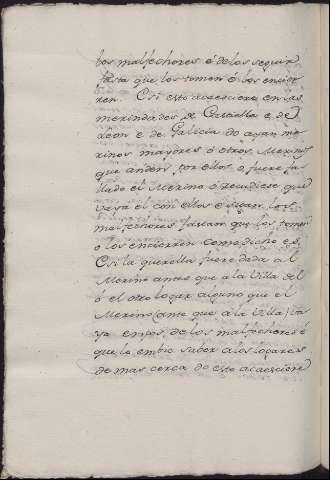 los malfechores ó delos seguir
fasta que los tomen ó los encier
ren. E si esto acaesciere en las
merindades de Castiella e de
Leon e de Galicia do ayan me
rinos mayores ó otros Merinos
que anden por ellos o fuere fa
llado el Merino ó recudiese que
vaya él con ellos é sigan los
malfechores fastam que los tomen
o los encierren Como dicho es,
E si la querella fuere dada al
Merino antes que a la Villa
ó el otro logar alguno que el
Merino ante que a la Villa
vaya empos de los malfechores é
que lo embie saber a los logares
de mas cerca do esto acaesciere